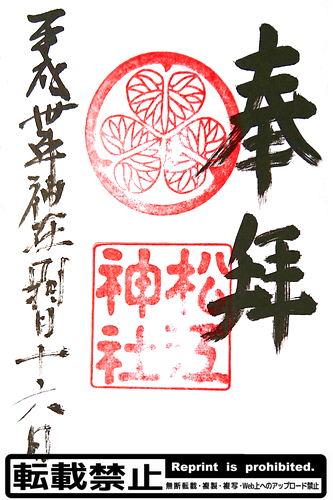 奉拝
松江
神社
平成丗年神在十六日
転載禁止
Reprint is prohibited.
無断転載・複製・複写・Web上へのアップロード禁止